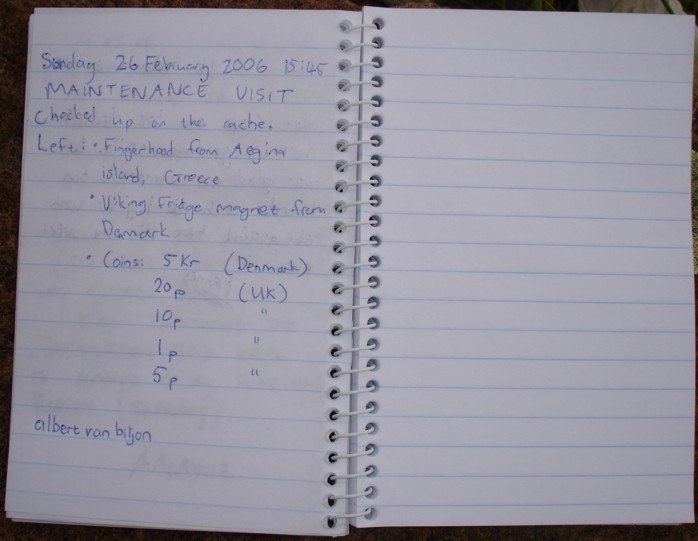 Sunday 26 February 2006 15:45
MAINTENANCE VISIT
Checked up on this cache.
Left: • Fingerhood from Aegina
island, Greece
• Viking Fridge magnet from
Denmark
• Coins: 5 Kr (Denmark)
20p (UK)
10p "
1p "
5p "
albert van biljon